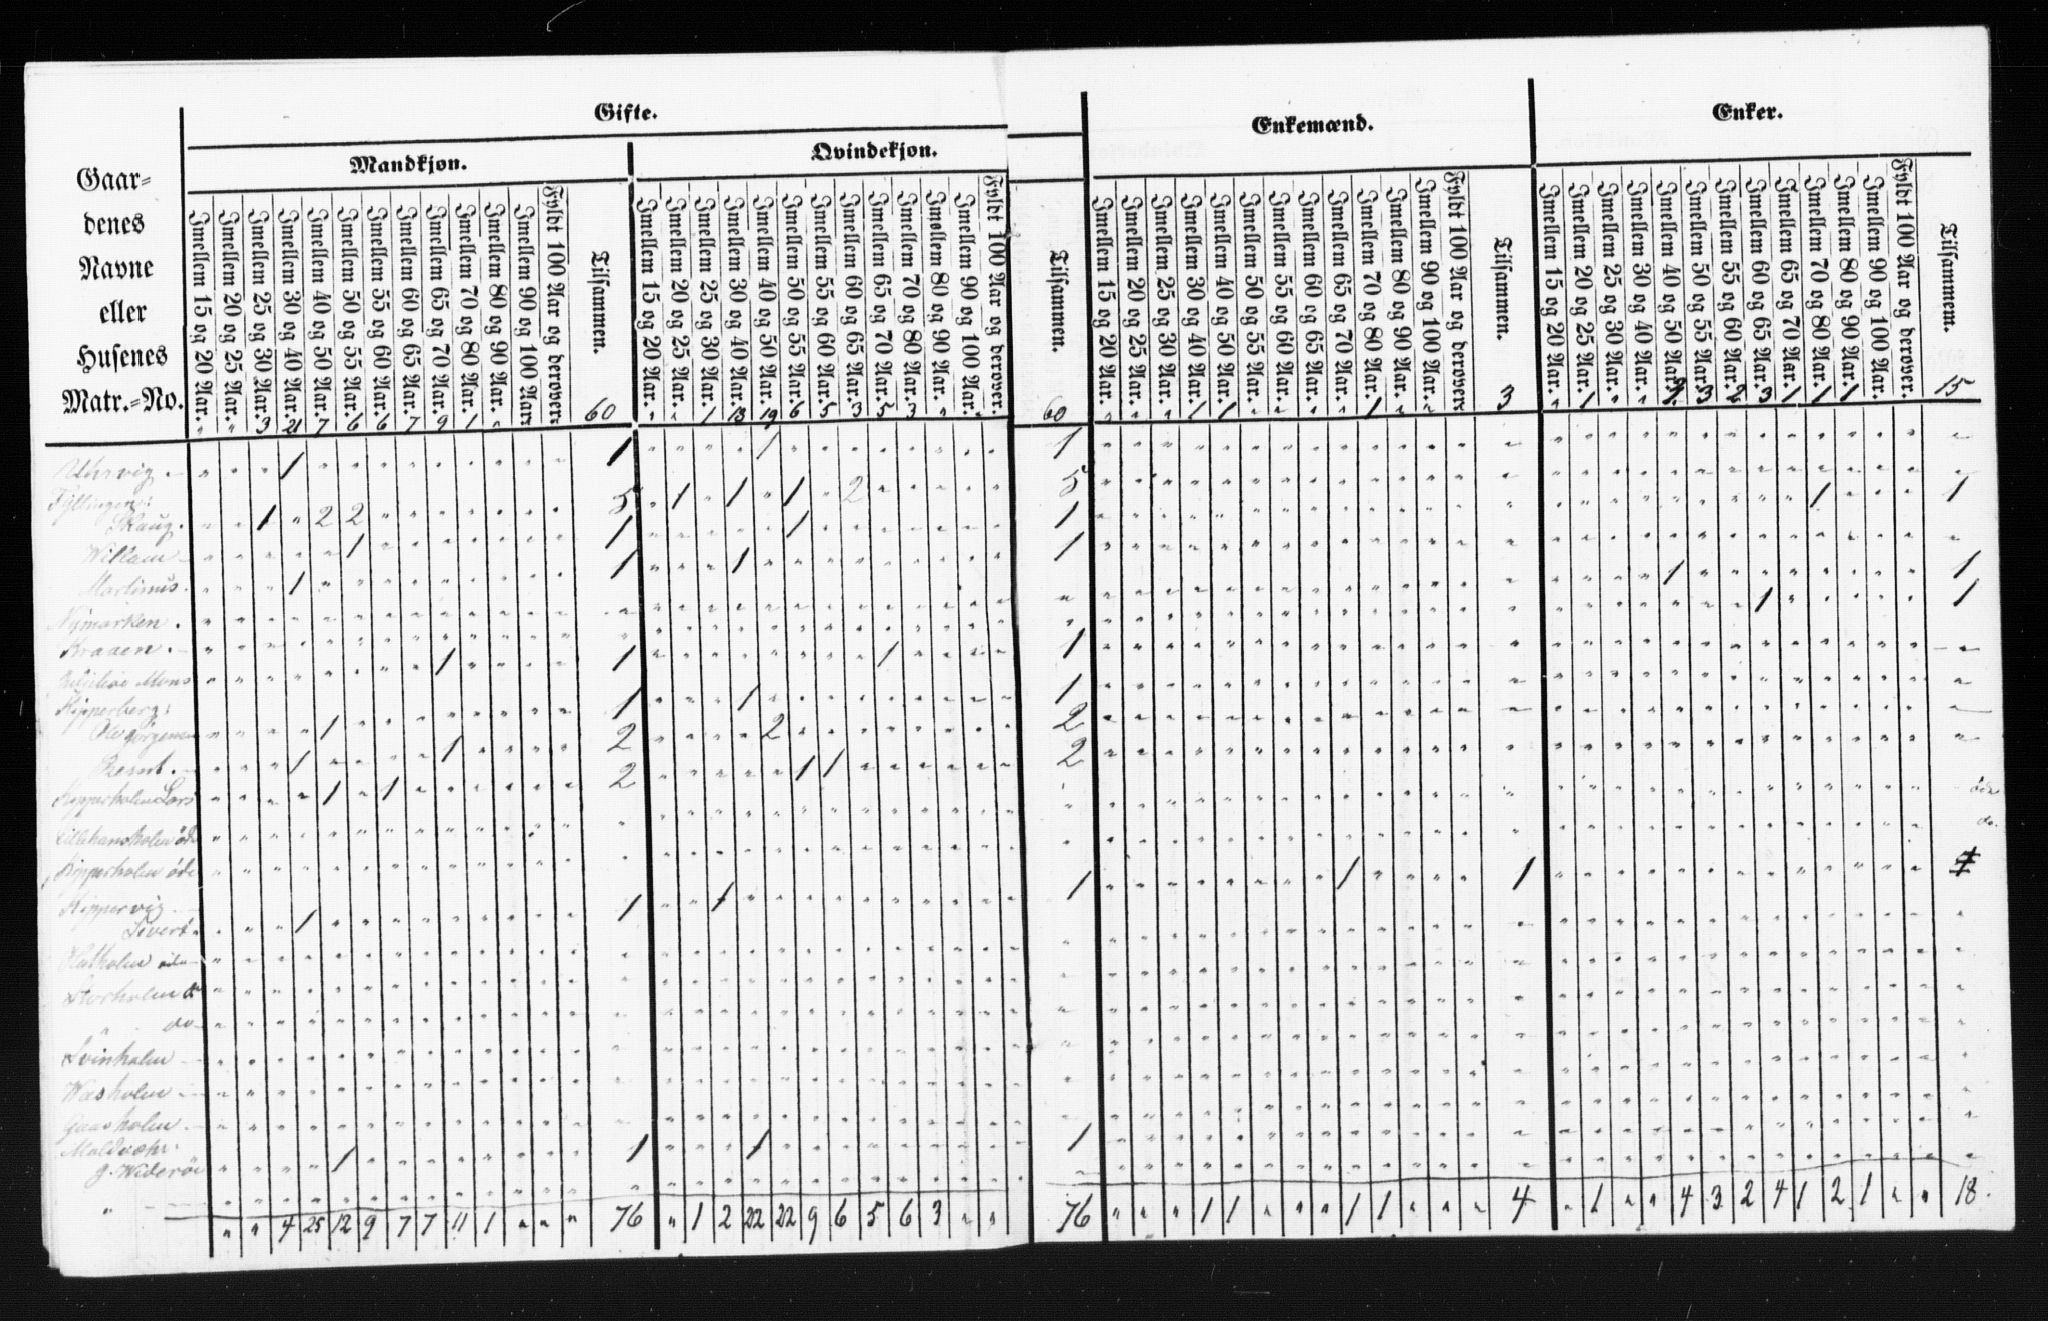 Gifte.
Enkemænd.
Enker.
Mandkjøn.
Qvindekjøn.
Gaar=
denes
Navne
eller
Husenes
Matr.=No.
Imellem 15 og 20 Aar.
Imellem 20 og 25 Aar.
Imellem 25 og 30 Aar.
Imellem 30 og 40 Aar.
Imellem 40 og 50 Aar.
Imellem 50 og 55 Aar.
Imellem 55 og 60 Aar.
Imellem 60 og 65 Aar.
Imellem 65 og 70 Aar.
Imellem 70 og 80 Aar.
Imellem 80 og 90 Aar.
Imellem 90 og 100 Aar.
Fyldt 100 Aar og derover.
Tilsammen.
Imellem 15 og 20 Aar.
Imellem 20 og 25 Aar.
Imellem 25 og 30 Aar.
Imellem 30 og 40 Aar.
Imellem 40 og 50 Aar.
Imellem 50 og 55 Aar.
Imellem 55 og 60 Aar.
Imellem 60 og 65 Aar.
Imellem 65 og 70 Aar.
Imellem 70 og 80 Aar.
Imellem 80 og 90 Aar.
Imellem 90 og 100 Aar.
Fyldt 100 Aar og derover.
Tilsammen.
Imellem 15 og 20 Aar.
Imellem 20 og 25 Aar.
Imellem 25 og 30 Aar.
Imellem 30 og 40 Aar.
Imellem 40 og 50 Aar.
Imellem 50 og 55 Aar.
Imellem 55 og 60 Aar.
Imellem 60 og 65 Aar.
Imellem 65 og 70 Aar.
Imellem 70 og 80 Aar.
Imellem 80 og 90 Aar.
Imellem 90 og 100 Aar.
Fyldt 100 Aar og derover.
Tilsammen.
Imellem 15 og 20 Aar.
Imellem 20 og 25 Aar.
Imellem 25 og 30 Aar.
Imellem 30 og 40 Aar.
Imellem 40 og 50 Aar.
Imellem 50 og 55 Aar.
Imellem 55 og 60 Aar.
Imellem 60 og 65 Aar.
Imellem 65 og 70 Aar.
Imellem 70 og 80 Aar.
Imellem 80 og 90 Aar.
Imellem 90 og 100 Aar.
Fyldt 100 Aar og derover.
Tilsammem.
" " 3 21 7 6 6 7 9 1 " 60 " " 1 18 19 6 5 3 5 3 " " " 60 " " " 1 1 " " " " 1 " " 3 " 1 " " 3 2 3 1 1 1 15
1 1 1 1
Fyllingen:
1 2 2 5 1 1 1 2 5 1 1
1 1 1 1
Martinus. 1 1 1 1 1 1
Nymarken. 1 1
Kraaen.
Mons 1 1 1 1
Kipperberg:
Ole Jørgensen 1 1 1 1
Berent. 1 1 2 2 2
Kipperholm Lars 1 1 2 1 1 2
Lillehansholm øde øde
Kipperholm øde do.
Kippervig
Sivert. 1 1 1 1 1 1
Hatholm øde
Storholm do
" do
Svinholm
Gaasholm
Moldvær:
g. Widerøe 1 1 1 1
" " 4 25 12 9 7 7 11 1 " " " 76 " 1 2 22 22 9 6 5 6 3 " " 76 " " " 1 1 " " " 1 1 " " " 4 " 1 " " 4 3 2 4 1 2 1 " " 18.